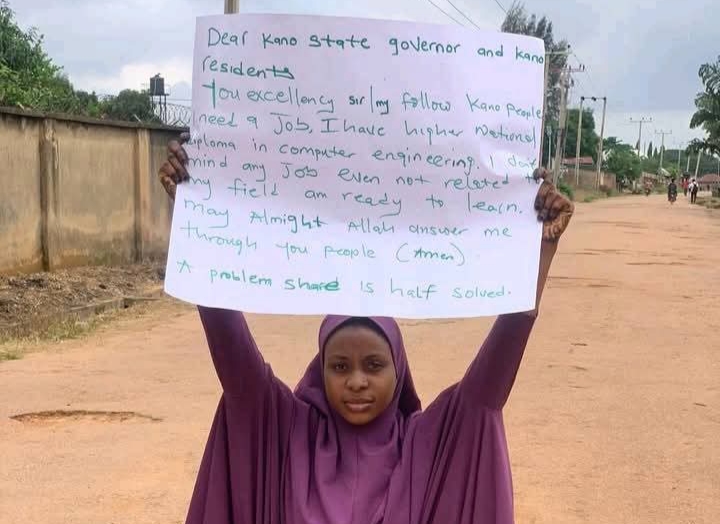 Dear Kano state governor and Kano
residents
You excellency sir/my follow Kano people
I need a Job, I have higher National
diploma in computer engineering. I don't
mind any Job even not related to
my field am ready to learn.
may Almight Allah answer me
through you people (Amen).
A problem share is half solved.